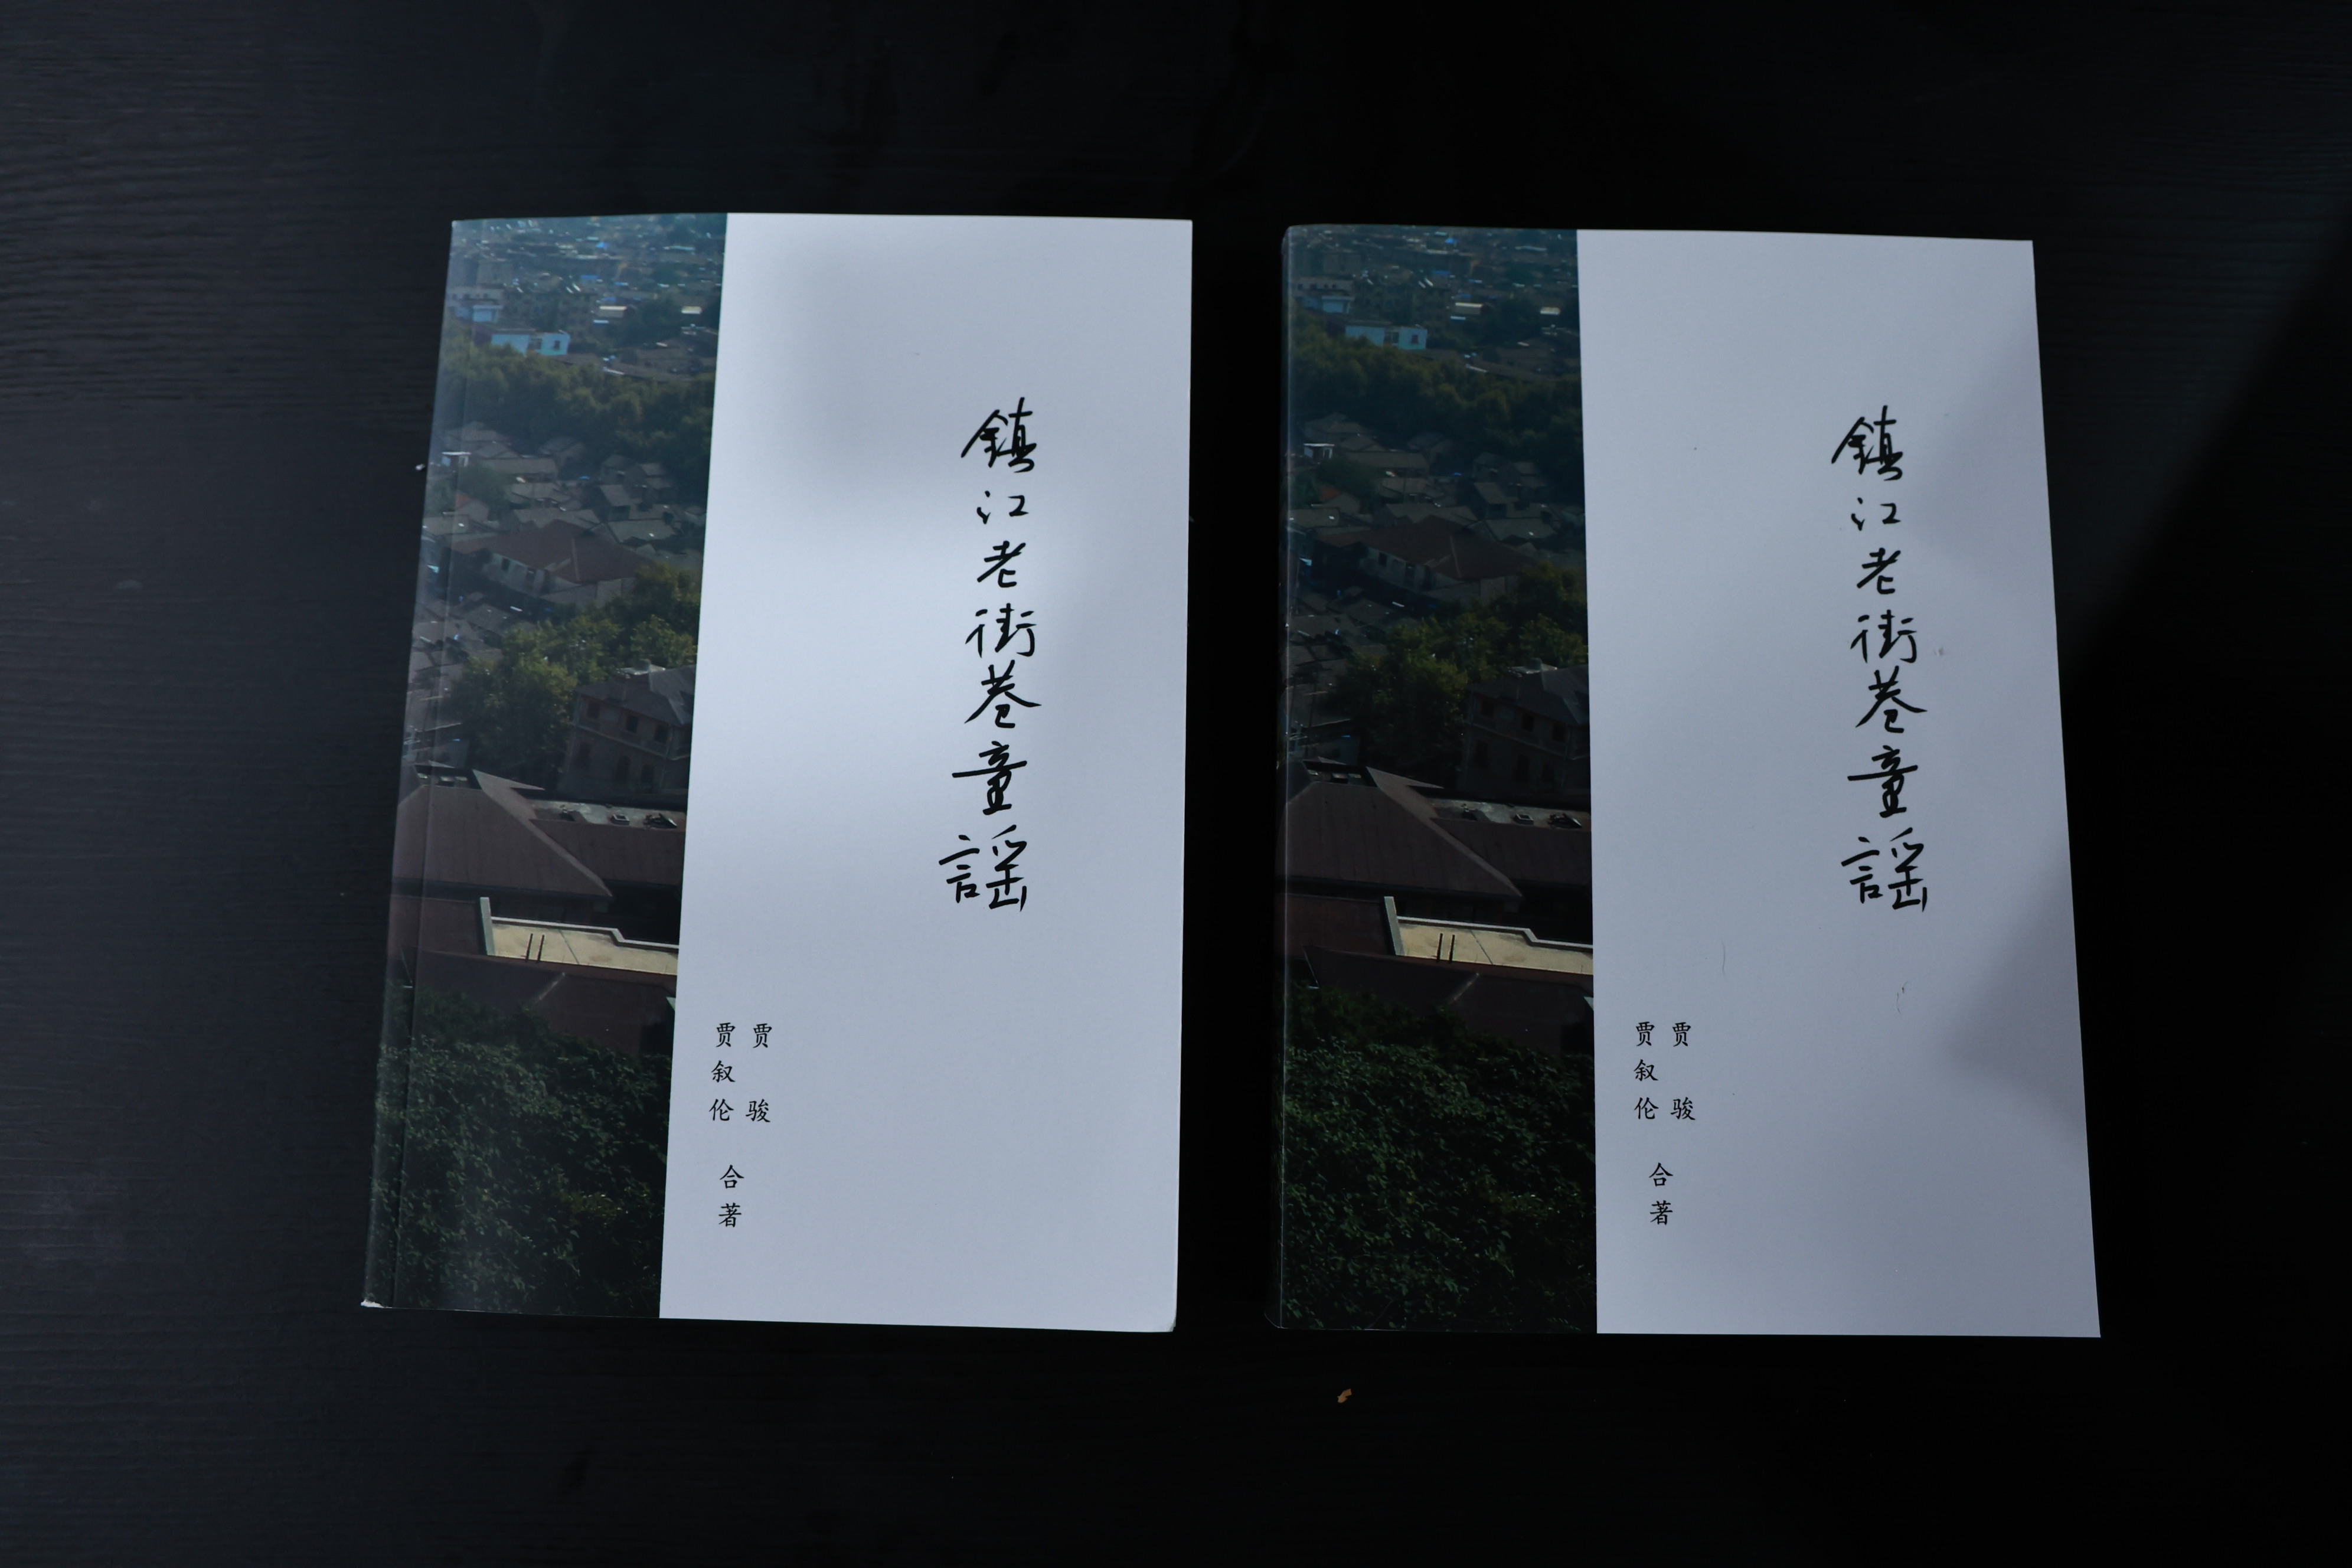 鎮江老街巷童謡
贾骏
贾叙伦
合著
鎮江老街巷童謡
贾骏
贾叙伦
合著